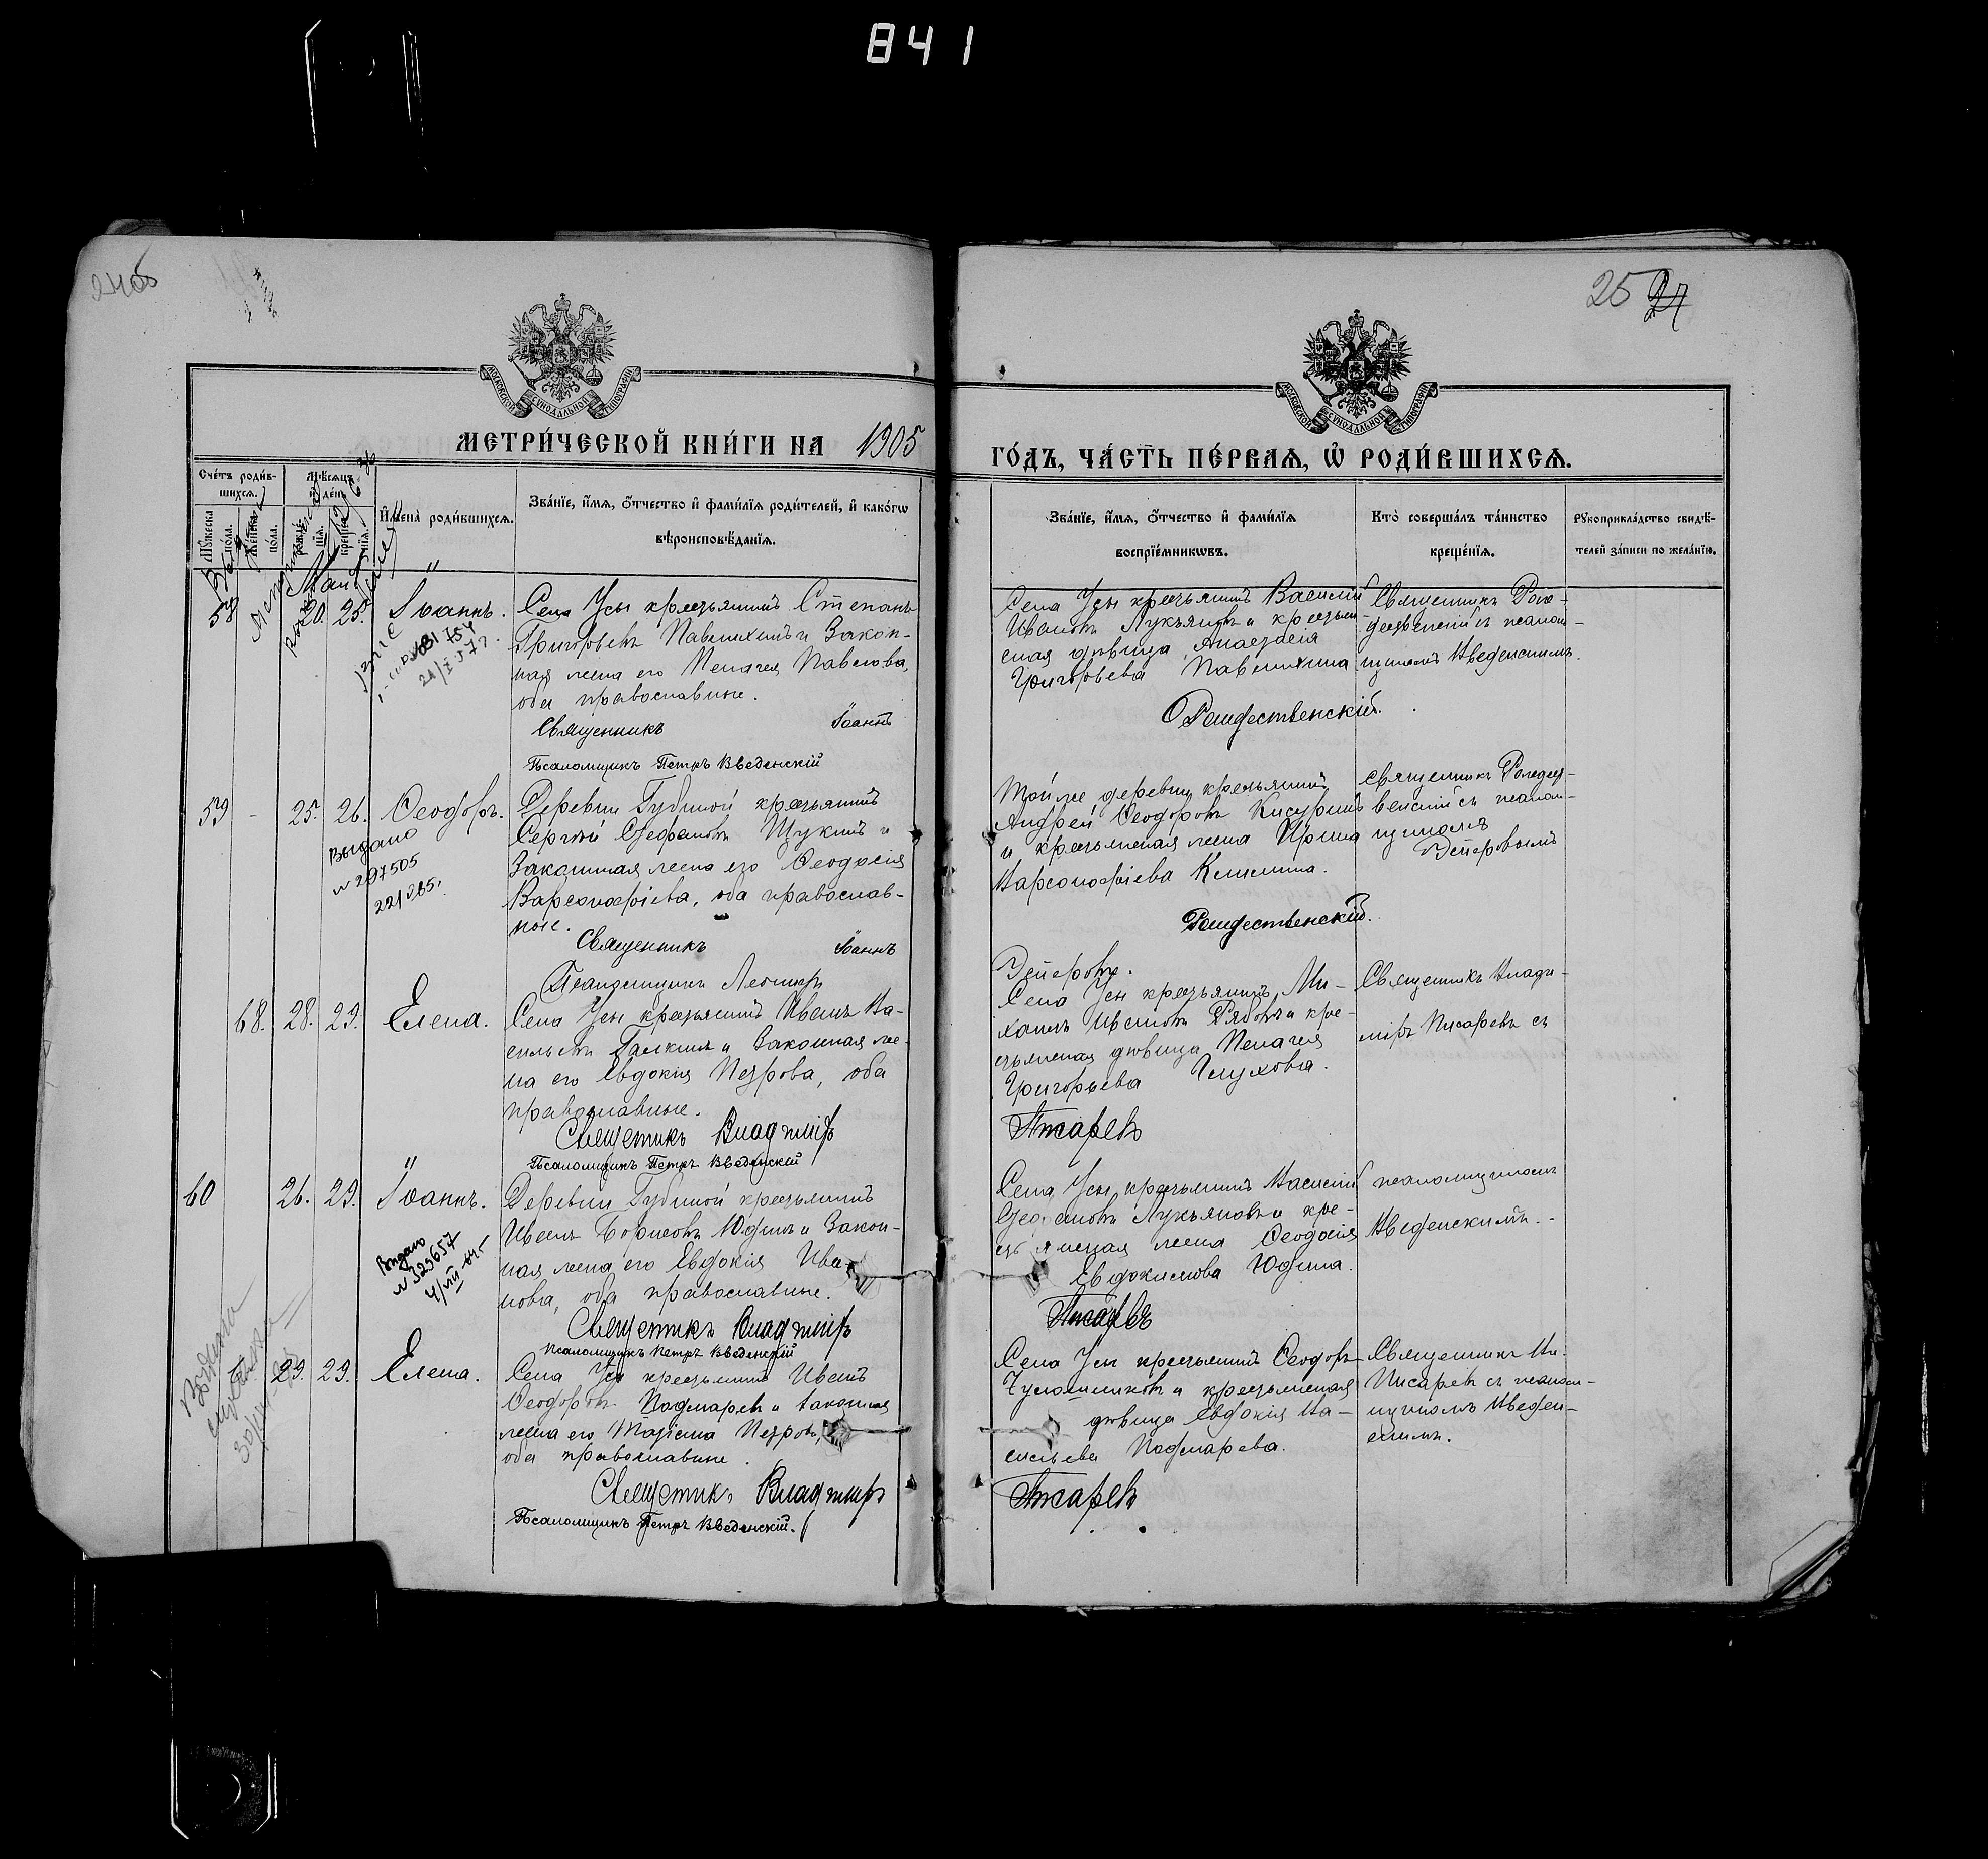 841
25 27
МОСКОВСКОЙ СѴНОДАЛЬНОЙ ТИПОГРАФІИ
МОСКОВСКОЙ СѴНОДАЛЬНОЙ ТИПОГРАФІИ
МЕТРИ́ЧЕСКОЙ КНИ́ГИ НА 1905
ГО́ДЪ, ЧА́СТЬ ПЕ́РВАЯ, Ѡ РОДИ́ВШИХСЯ.
Сче́тъ роди́в-
шихся.
Мѣ́сяцъ
и де́нь
Му́жеска
по́ла.
Же́нска
по́ла.
рожде́-
нїя.
креще́-
нїя.
И҆мена̀ роди́вшихся.
Зва́нїе, и҆́мя, ѻ҆́тчество и҆ фами́лїя роди́телей, и҆ како́гѡ
вѣроисповѣ́данїя.
Зва́нїе, и҆́мя, ѻ҆́тчество и҆ фами́лїя
воспрїе́мникѡвъ.
Кто̀ соверша́лъ та́инство
креще́нїя.
Рꙋкоприкла́дство свидѣ́-
телей за́писи по жела́нїю.
Май
58 20. 25. Іоаннъ.
Села Усы крестьянинъ Степанъ
Григорьевъ Павлихинъ и закон-
ная жена его Пелагея Павлова,
оба православные.
Священникъ Іоаннъ
Псаломщикъ Петръ Введенскій
Села Усы крестьянинъ Василій
Ивановъ Лукъяновъ и крестьян-
ская дѣвица Анастасія
Григорьева Павлихина
Рождественскій.
Священникъ Рож-
дественскій съ псалом-
щикомъ Введенскимъ.
59 - 25. 26. Ѳеодоръ.
Выдано
№ 297505
Деревни Губиной крестьянинъ
Сергѣй Стефановъ Щукинъ и
законная жена его Ѳеодосія
Варсонофіева, оба православ-
ные.
Священникъ Іоаннъ
Псаломщикъ
Той же деревни крестьянинъ
Андрей Ѳеодоровъ
и крестьянская жена Ирина
Варсонофіева
Рождественскій.
Священникъ Рождест-
венскій съ псалом-
щикомъ
68. 28. 29. Елена.
Села Усы крестьянинъ Иванъ Ва-
сильевъ Галкинъ и законная же-
на его Евдокія Петрова, оба
православные.
Священникъ Владиміръ
Псаломщикъ Петръ Введенскій
Села Усы крестьянинъ Ми-
хаилъ Ивановъ Рябовъ и кре-
стьянская дѣвица Пелагея
Григорьева Глухова.
Писаревъ
Священникъ Влади-
міръ Писаревъ съ
60 26. 29. Іоаннъ.
Выдано
№ 329657
Деревни Губиной крестьянинъ
Иванъ Борисовъ Юдинъ и закон-
ная жена его Евдокія Ива-
нова, оба православные.
Священникъ Владиміръ
Псаломщикъ Петръ Введенскій
Села Усы крестьянинъ Василій
Стефановъ Лукъяновъ и кре-
стьянская жена Ѳеодосія
Евдокимова Юдина.
Писаревъ
псаломщикомъ
Введенскимъ.
29. 29. Елена.
Села Усы крестьянинъ Иванъ
Ѳеодоровъ и законная
жена его Петрова,
оба православные.
Священникъ Владиміръ
Псаломщикъ Петръ Введенскій.
Села Усы крестьянинъ Ѳеодоръ
и крестьянская
дѣвица Евдокія Ва-
сильева
Писаревъ
Священникъ Вл.
Писаревъ съ псалом-
щикомъ Введен-
скимъ.